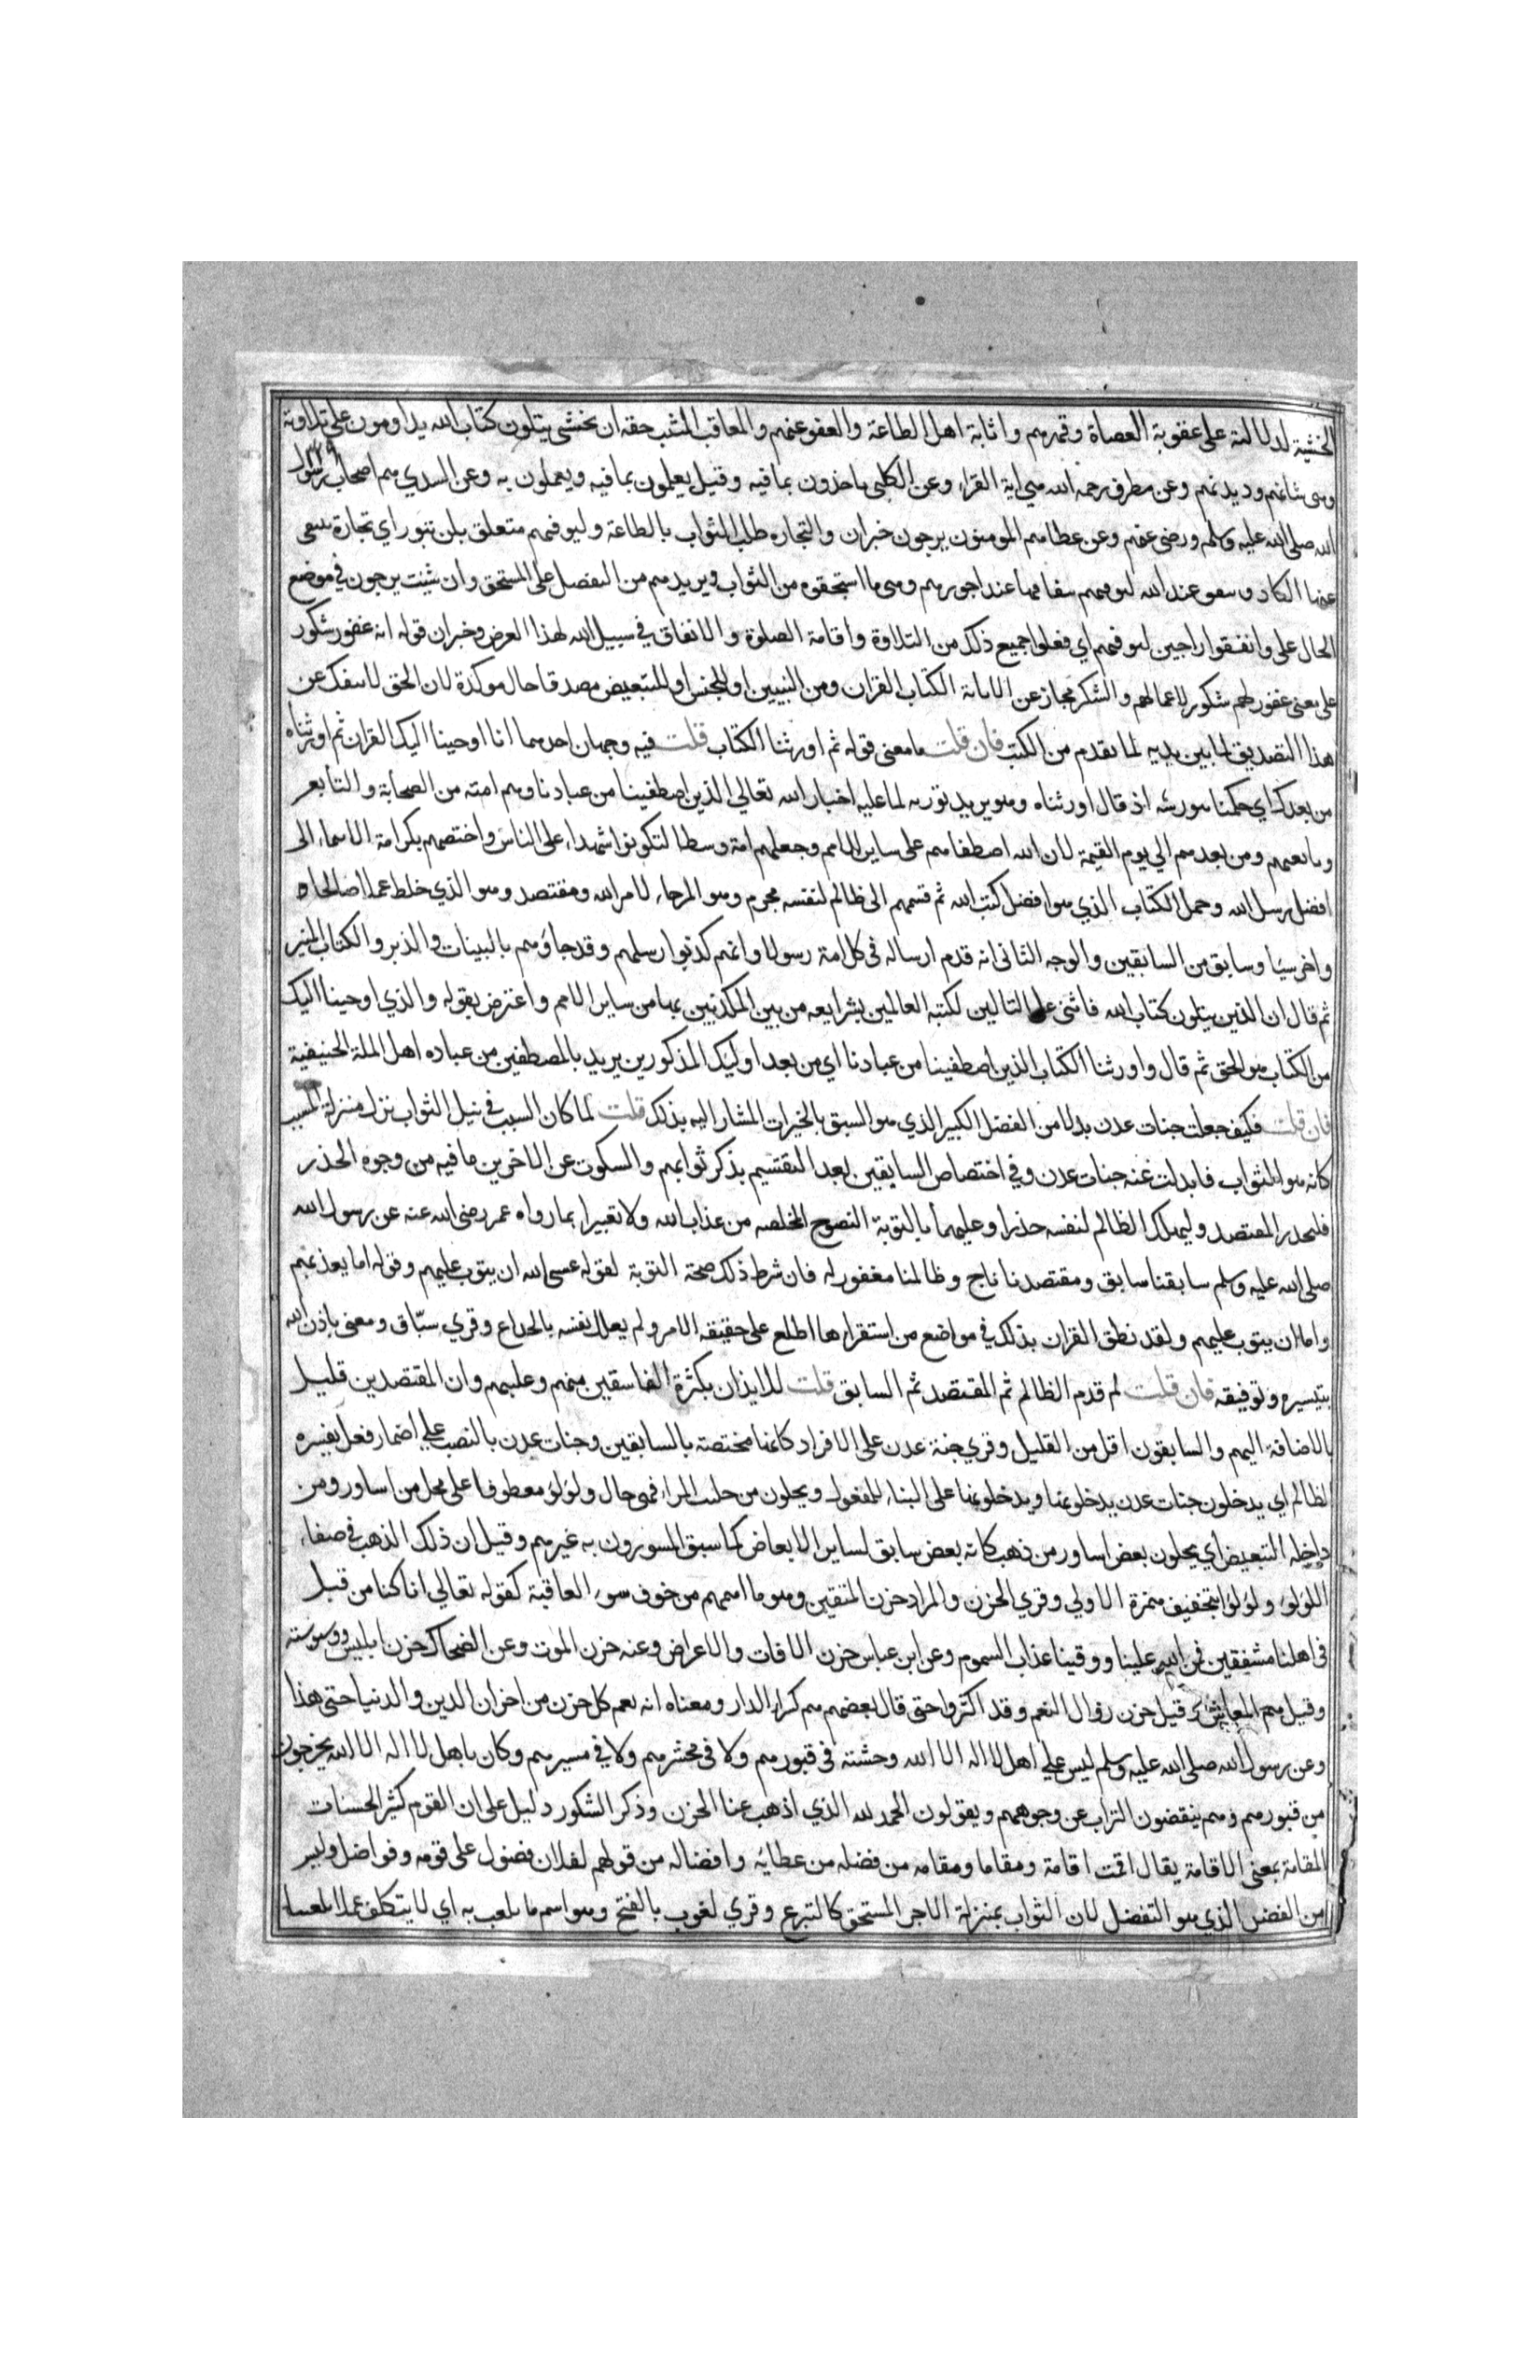 الخشية لدلالته على عقوبة العصاة وقهرهم واثابة اهل الطاعة والعفو عنهم والمعاقب المثيب حقه ان يخشى يتلون كتاب الله يداومون على تلاوته
وهى شانهم وديدنهم وعن مطرف رحمه الله هي اية القراء وعن الكلبى ياخذون بما فيه وقيل يعلمون بما فيه ويعملون به وعن السدي هم اصحاب رسول
الله صلى الله عليه وسلم ورضى عنهم وعن عطا هم المومنون يرجون خبر ان والتجاره طلب الثواب بالطاعة وليوفيهم متعلق بلن تبور اي تجارة ينتفى
عنها الكساد وينفق عند الله ليوفيهم بنفاقها عنده اجورهم وهى ما استحقوه من الثواب ويزيدهم من التفضل على المستحق وان شيت يرجون في موضع
الحال على وانفقوا راجين ليوفيهم اي فعلوا جميع ذلك من التلاوة واقامة الصلوة والانفاق في سبيل الله لهذا الغرض وخبر ان قوله انه غفور شكور
على معنى غفور لهم شكور لاعمالهم والشكر مجاز عن الاثابة الكتاب القران ومن للتبيين او للجنس او للتبعيض مصدقا حال موكدة لان الحق لا ينفك عن
هذا التصديق لما بين يديه لما تقدم من الكتب فان قلت ما معنى قوله ثم اورثنا الكتاب قلت فيه وجهان احدهما انا اوحينا اليك القران ثم اورثناه
من بعدك اي حكمنا بتوريثه اذ قال اورثناه وهو يريد نورثه لما عليه اخبار الله تعالي الذين اصطفينا من عبادنا وهم امته من الصحابة والتابعين
وتابعيهم ومن بعدهم الي يوم القيمة لان الله اصطفاهم على ساير الامم وجعلهم امة وسطا لتكونوا شهداء على الناس واختصهم بكرامة الانتماء الى
افضل رسل الله وحمل الكتاب الذي هو افضل كتب الله ثم قسمهم الى ظالم لنفسه مجرم وهو المرجاء لامر الله ومقتصد وهو الذي خلط عملا صالحا
واخر سيا وسابق من السابقين والوجه الثانى انه قدم ارساله فى كل امة رسولا وانهم كذبوا رسلهم وقد جاؤهم بالبينات والزبر والكتاب المنير
ثم قال ان الذين يتلون كتاب الله فاثنى على التالين لكتبه العاملين بشرايعه من بين المكذبين بها من ساير الامم واعترض بقوله والذي اوحينا اليك
من الكتاب هو الحق ثم قال واورثنا الكتاب الذين اصطفينا من عبادنا اي من بعد اوليك المذكورين يريد بالمصطفين من عباده اهل الملة الحنيفية
فان قلت فكيف جعلت جنات عدن بدلا من الفضل الكبير الذي هو السبق بالخيرات المشار اليه بذلك قلت لما كان السبب في نيل الثواب نزل منزلة المسبب
كانه هو الثواب فابدلت عنه جنات عدن وفي اختصاص السابقين بعد التقسيم بذكر ثوابهم والسكوت عن الاخرين ما فيه من وجوه الحذر
فليحذر المقتصد وليملك الظالم لنفسه حذرا وعليهما بالتوبة النصوح المخلصه من عذاب الله ولا تغيرا بما رواه عمر رضى الله عنه عن رسول الله
صلى الله عليه وسلم سابقنا سابق ومقتصدنا ناج وظالمنا مغفور له فان شرط ذلك صحة التوبة لقوله عسى الله ان يتوب عليهم وقوله اما يعذبهم
واما ان يتوب عليهم ولقد نطق القران بذلك في مواضع من استقراها اطلع على حقيقة الامر ولم يعلل نفسه بالخداع وقري سبّاق ومعنى باذن الله
بتيسيره وتوفيقه فان قلت لم قدم الظالم ثم المقتصد ثم السابق قلت للايذان بكثرة الفاسقين منهم وغلبتهم وان المقتصدين قليل
بالاضافة اليهم والسابقون اقل من القليل وقري جنة عدن على الافراد كانها مختصة بالسابقين وجنات عدن بالنصب علي اضمار فعل يفسره
الظاهر اي يدخلون جنات عدن يدخلونها ويدخلونها على البناء للمفعول ويحلون من حليت المراة فهى حال ولؤلؤ معطوفا على محل من اساور ومن
داخله التبعيض اي يحلون بعض اساور من ذهب كانه بعض سابق لساير الابعاض كما سبق المسورون به غيرهم وقيل ان ذلك الذهب في صفاء
اللؤلؤ ولؤلؤا بتخفيف همزة الاولي وقري الحزن والمراد حزن المتقين وهو ما اهمهم من خوف سوء العاقبة كقوله تعالي انا كنا من قبل
فى اهلنا مشفقين فمن الله علينا ووقينا عذاب السموم وعن ابن عباس حزن الافات والاعراض وعنه حزن الموت وعن الضحاك حزن ابليس ووسوسته
وقيل هم المعايش وقيل حزن زوال النعم وقد اكثروا حتى قال بعضهم هم كراء الدار ومعناه انه يعم كل حزن من احزان الدين والدنيا حتى هذا
وعن رسول الله صلى الله عليه وسلم ليس علي اهل لا اله الا الله وحشة فى قبورهم ولا فى محشرهم ولا في مسيرهم وكان باهل لا اله الا الله يخرجون
من قبورهم وهم ينفضون التراب عن وجوههم ويقولون الحمد لله الذي اذهب عنا الحزن وذكر الشكور دليل على ان القوم كثير الحسنات
المقامة بمعنى الاقامة يقال اقمت اقامة ومقاما ومقامه من فضله من عطائه وافضاله من قولهم لفلان فضول على قومه وفواضل وليس
من الفضل الذي هو التفضل لان الثواب بمنزلة الاجر المستحق كالتبرع وقري لغوب بالفتح وهو اسم ما يلعب به اي لا يتكلف عملا